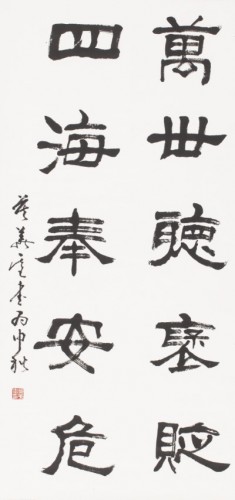 萬世聴褒貶
四海奉安危
書丙申秋